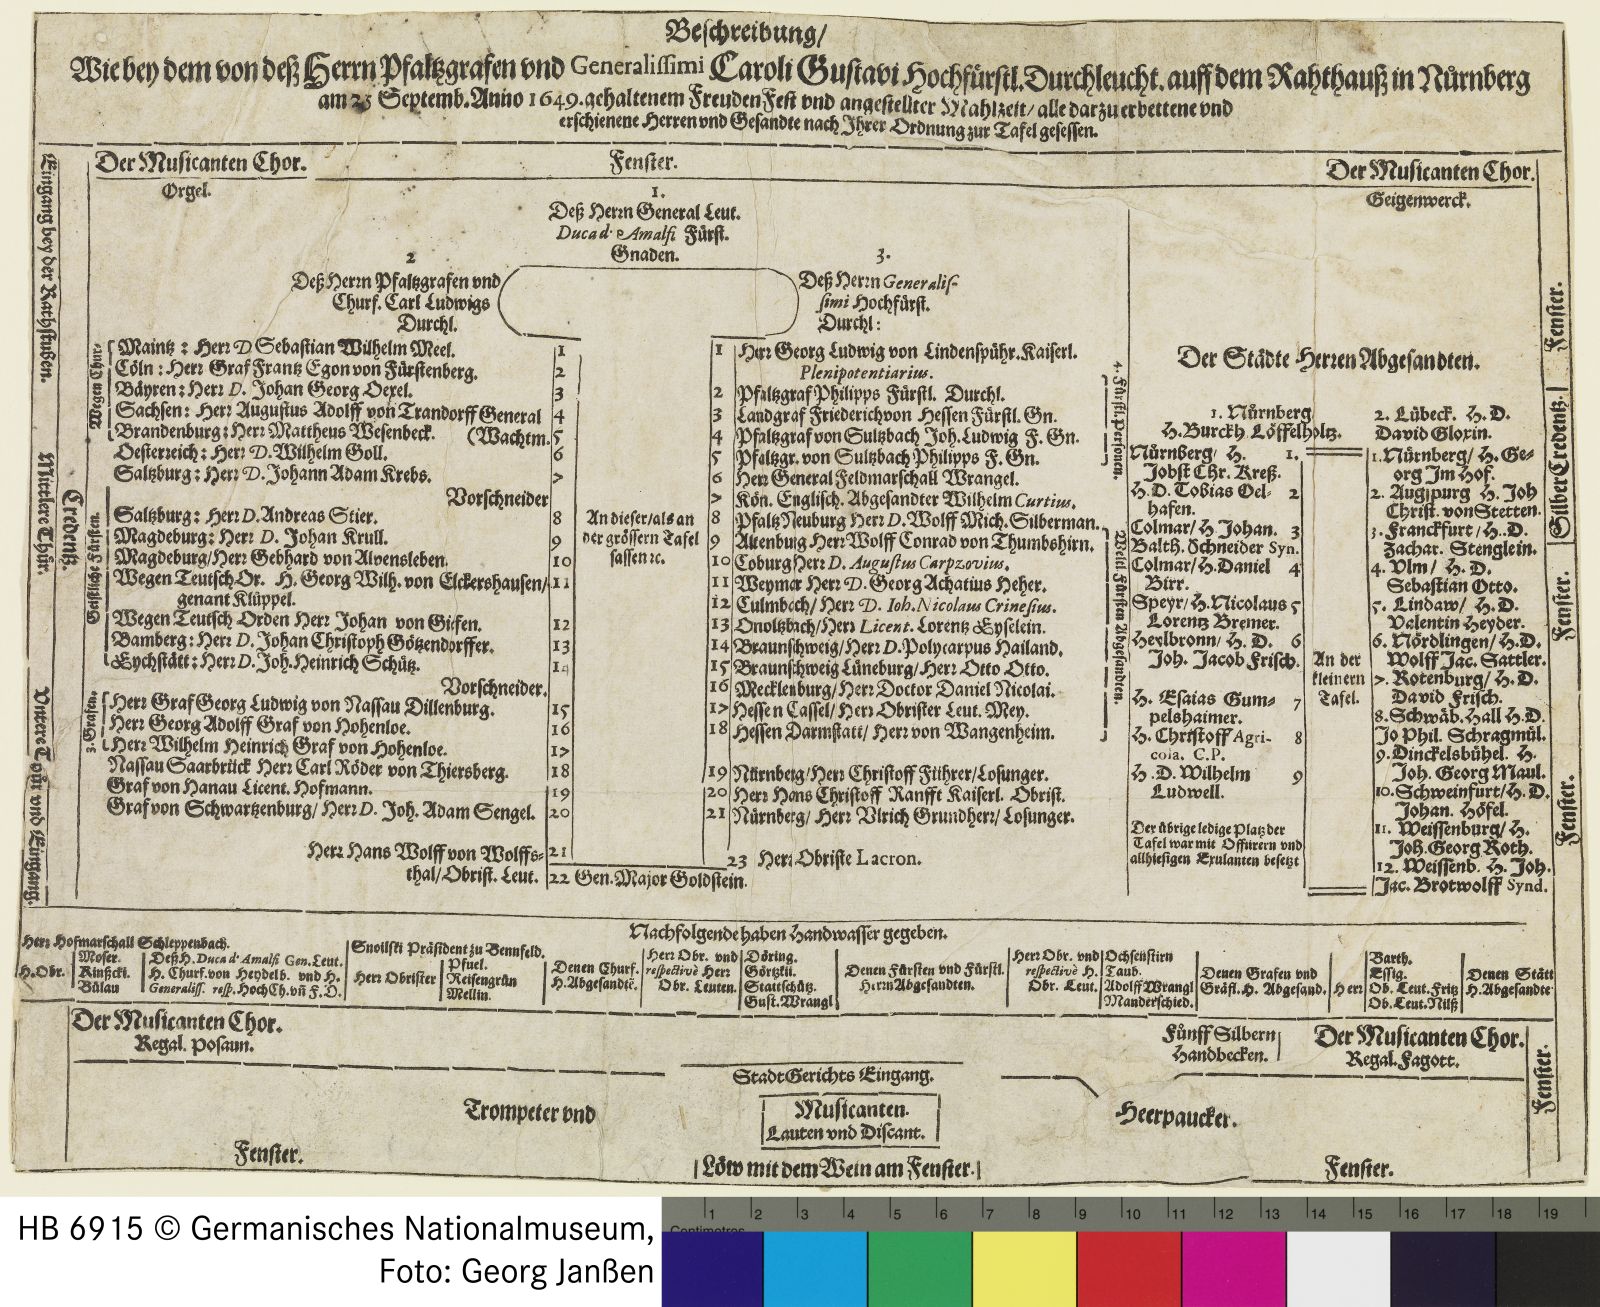 Beschreibung/
Wie bey dem von deß Herrn Pfaltzgrafen vnd Generalissimi Caroli Gustavi Hochfürstl. Durchleucht. auff dem Rahthauß in Nürnberg
am 25 Septemb. Anno 1649. gehaltenem FreudenFest vnd angestellter Mahlzeit/ alle darzu erbettene vnd
erschienene Herren vnd Gesandte nach Ihrer Ordnung zur Tafel gesessen.
Der Musicanten Chor.
Orgel.
Fenster.
Der Musicanten Chor.
Geigenwerck.
Eingang bey der Rathstuben.
Mittlere Thür.
Vntere Thür vnd Eingang.
Credentz.
1.
Deß Herrn General Leut.
Duca d' Amalfi Fürst.
Gnaden.
2
Deß Herrn Pfaltzgrafen vnd
Churf. Carl Ludwigs
Durchl.
3.
Deß Herrn Generalis-
simi Hochfürst.
Durchl:
Wegen Chur-
Maintz: Herr D Sebastian Wilhelm Meel. 1
Cöln: Herr Graf Frantz Egon von Fürstenberg. 2
Bäyren: Herr D. Johan Georg Oexel. 3
Sachsen: Herr Augustus Adolff von Trandorff General 4
Brandenburg: Herr Mattheus Wesenbeck. (Wachtm. 5
Geistliche Fürsten.
Oesterreich: Herr D. Wilhelm Goll. 6
Saltzburg: Herr D. Johann Adam Krebs. 7
Vorschneider
Saltzburg: Herr D. Andreas Stier. 8
Magdeburg: Herr D. Johan Krull. 9
Magdeburg/ Herr Gebhard von Alvensleben. 10
Wegen Teutsch Or. H. Georg Wilh. von Elckershausen/ 11
genant Klüppel.
Wegen Teutsch Orden Herr Johan von Giffen. 12
Bamberg: Herr D. Johan Christoph Götzendorffer. 13
Eychstätt: Herr D. Joh. Heinrich Schütz. 14
Vorschneider.
3. Grafen.
Herr Graf Georg Ludwig von Nassau Dillenburg. 15
Herr Georg Adolff Graf von Hohenloe. 16
Herr Wilhelm Heinrich Graf von Hohenloe. 17
Nassau Saarbrück Herr Carl Röder von Thiersberg. 18
Graf von Hanau Licent. Hofmann. 19
Graf von Schwartzenburg/ Herr D. Joh. Adam Sengel. 20
Herr Hans Wolff von Wolffs- 21
thal/ Obrist. Leut.
22 Gen. Major Goldstein.
An dieser/ als an
der grössern Tafel
sassen ꝛc.
1 Herr Georg Ludwig von Lindenspühr. Kaiserl.
Plenipotentiarius.
4. Fürstl. Personen.
2 Pfaltzgraf Philipps Fürstl. Durchl.
3 Landgraf Friederich von Hessen Fürstl. Gn.
4 Pfaltzgraf von Sultzbach Joh. Ludwig F. Gn.
5 Pfaltzgr. von Sultzbach Philipps F. Gn.
6 Herr General Feldmarschall Wrangel.
7 Kön. Englisch. Abgesandter Wilhelm Curtius.
8 Pfaltz Neuburg Herr D. Wolff Mich. Silberman.
9 Altenburg Herr Wolff Conrad von Thumbshirn.
10 Coburg Herr D. Augustus Carpzovius.
11 Weymar Herr D. Georg Achatius Heher.
12 Culmbach/ Herr D. Ioh. Nicolaus Crinesius.
13 Onoltzbach/ Herr Licent. Lorentz Eyselein.
14 Braunschweig/ Herr D. Polycarpus Hailand.
15 Braunschweig Lüneburg/ Herr Otto Otto.
16 Mecklenburg/ Herr Doctor Daniel Nicolai.
17 Hessen Cassel/ Herr Obrister Leut. Mey.
18 Hessen Darmstatt/ Herr von Wangenheim.
19 Nürnberg/ Herr Christoff Führer/ Losunger.
20 Herr Hans Christoff Ranfft Kaiserl. Obrist.
21 Nürnberg/ Herr Vlrich Grundherr/ Losunger.
23 Herr Obriste Lacron.
Der Städte Herren Abgesandten.
1. Nürnberg
H. Burckh Löffelholtz.
2. Lübeck. H. D.
David Gloxin.
Nürnberg/ H. 1.
Jobst Chr. Kreß.
H. D. Tobias Oel- 2
hafen.
Colmar/ H Johan. 3
Balth. Schneider Syn.
Colmar/ H. Daniel 4
Birr.
Speyr/ H. Nicolaus 5
Lorentz Bremer.
Heylbronn/ H. D. 6
Joh. Jacob Frisch.
H. Esaias Gum- 7
pelshaimer.
H. Christoff Agri- 8
cola. C. P.
H. D. Wilhelm 9
Ludwell.
Der übrige ledige Platz der
Tafel war mit Officirern vnd
allhiesigen Exulanten besetzt
An der
kleinern
Tafel.
1. Nürnberg/ H. Ge-
org Im Hof.
2. Augspurg H. Joh
Christ. von Stetten.
3. Franckfurt/ H. D.
Zachar. Stenglein.
4. Vlm/ H. D.
Sebastian Otto.
5. Lindaw/ H. D.
Valentin Heyder.
6. Nördlingen/ H. D.
Wolff Jac. Sattler.
7. Rotenburg/ H. D.
David Frisch.
8. Schwäb. Hall H. D.
Jo Phil. Schragmül.
9. Dinckelsbühel. H.
Joh. Georg Maul.
10. Schweinfurt/ H. D.
Johan. Höfel.
11. Weissenburg/ H.
Joh. Georg Roth.
12. Weissenb. H. Joh.
Jac. Brotwolff Synd.
Fenster.
SilberCredentz.
Fenster.
Fenster.
Nachfolgende haben Handwasser gegeben.
Herr Hofmarschall Schleppenbach.
H. Obr.
Moser.
Kinßcki.
Bülau
Deß H. Duca d' Amalfi Gen. Leut.
H. Churf. von Heydelb. vnd H.
Generaliss. resp. Hoch Ch. vn̄ F. D.
Snoilski Präsident zu Bennfeld.
Herr Obrister
Pfuel.
Reisengrün
Mellin.
Denen Churf.
H. Abgesandtē.
Herr Obr. vnd
respectivè Herr
Obr. Leuten.
Döring.
Görtzki.
Stattschütz.
Gust. Wrangl
Denen Fürsten vnd Fürstl.
Herrn Abgesandten.
Herr Obr. vnd
respectivè H.
Obr. Leut.
Ochsenstirn
Taub.
Adolff Wrangl
Manderschied.
Denen Grafen vnd
Gräfl. H. Abgesand.
Herr
Barth.
Essig.
Ob. Leut. Fritz
Ob. Leut. Nilß
Denen Stätt
H. Abgesandte
Der Musicanten Chor.
Regal. Posaun.
Fünff Silbern
Handbecken.
Der Musicanten Chor.
Regal. Fagott.
Fenster.
StadtGerichts Eingang.
Trompeter vnd
Musicanten.
Lauten vnd Discant.
Heerpaucker.
Fenster.
Löw mit dem Wein am Fenster.
Fenster.
HB 6915 © Germanisches Nationalmuseum,
Foto: Georg Janßen
1 2 3 4 5 6 7 8 9 10 11 12 13 14 15 16 17 18 19
Centimetres